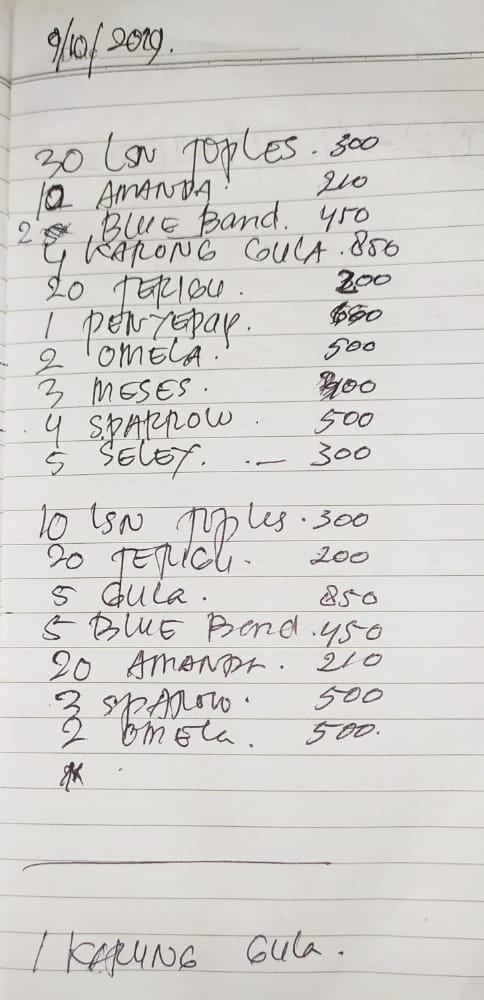 9/10/2019.
30 LSN TOPLES. 300
10 AMANDA. 210
2 BLUE Band. 450
4 KARONG GULA. 850
20 TERIGU. 200
1 PENYEDAP.
2 OMELA. 500
3 MESES. 400
4 SPARROW. 500
5 SELEY. - 300
10 LSN TOPles. 300
20 TERIGU. 200
5 Gula. 850
5 BLUE Band. 450
20 AMANDA. 210
3 SPAROW. 500
2 OMELa. 500.
1 KARUNG Gula.